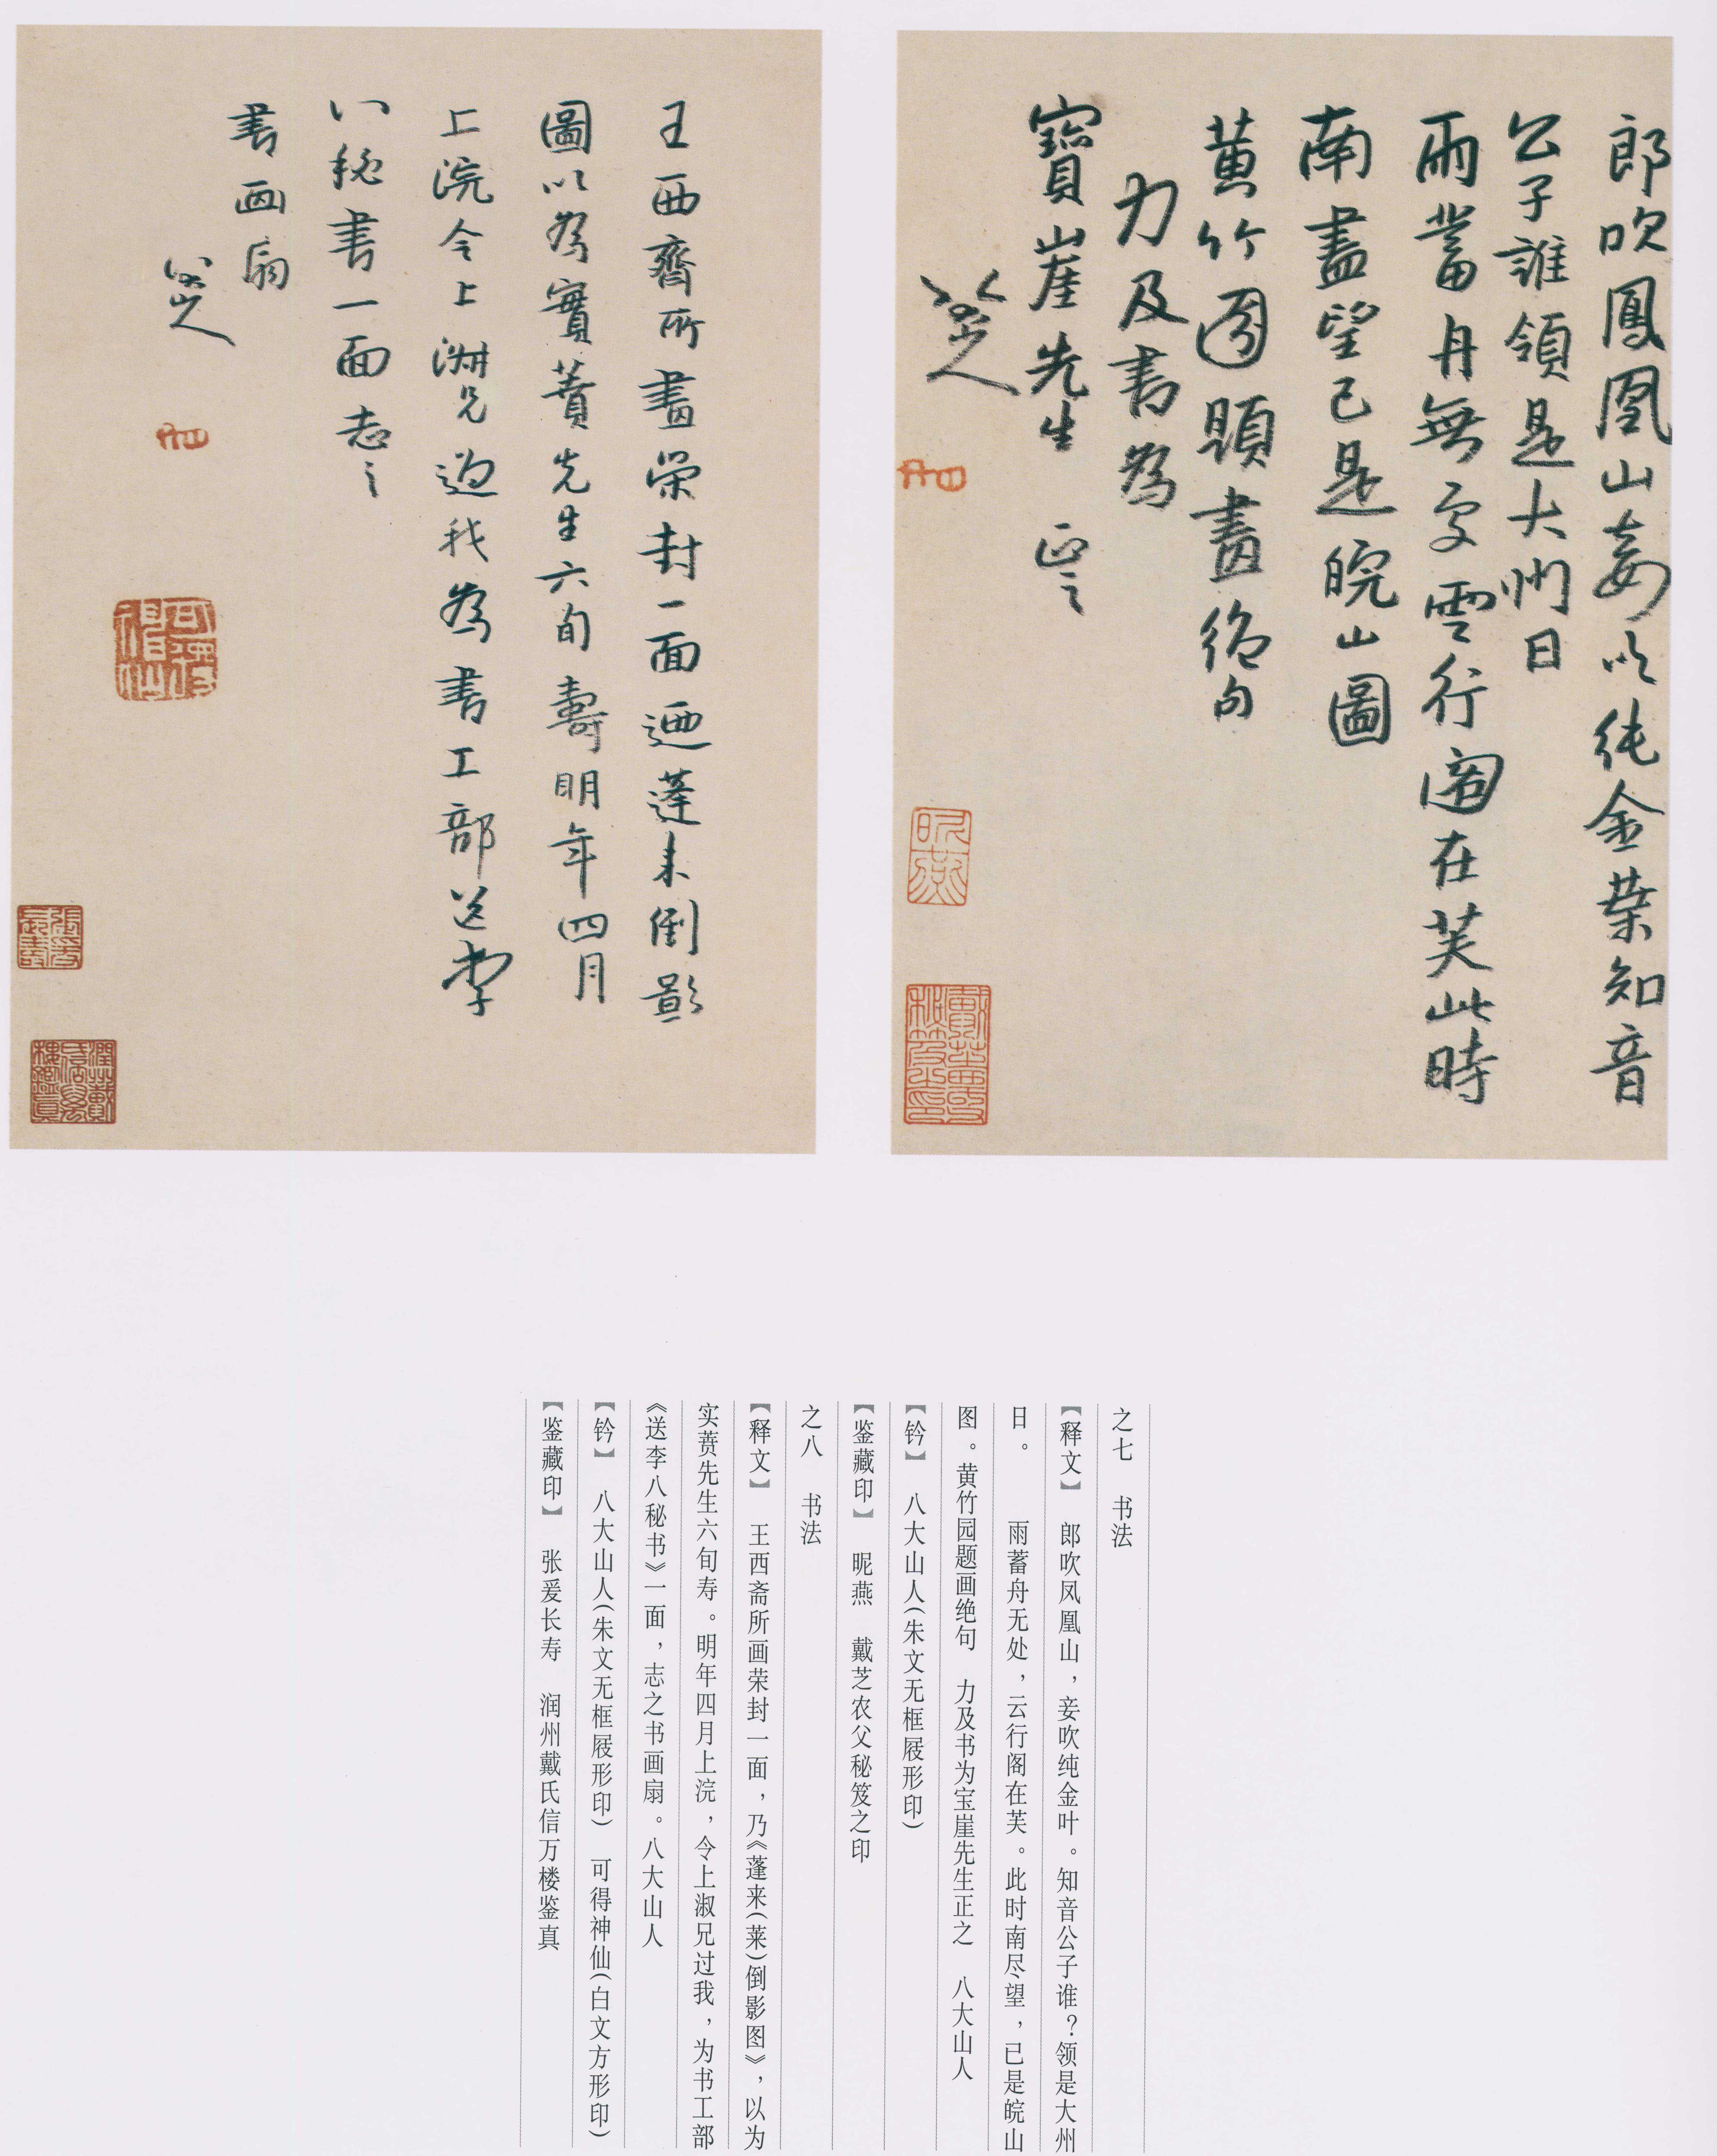 郎吹鳳凰山妾吹純金葉知音
公子誰領是大州日
雨蓄舟無処雲行閣在芙此時
南盡望已是皖山圖
黄竹園題畫絶句
力及書為
寶崖先生 正之
八大山人
昵燕
戴芝農父秘笈之印
王西齋所畫荣封一面迺蓬来倒影
圖以為實蕡先生六旬壽明年四月
上浣令上淑兄過我為書工部送李
八秘書一面志之
書画扇
八大山人
可得神仙
張爰長壽
潤州戴氏信萬樓鑑真
之七 书法
【释文】 郎吹凤凰山，妾吹纯金叶。知音公子谁？领是大州
日。 雨蓄舟无处，云行阁在芙。此时南尽望，已是皖山
图。黄竹园题画绝句 力及书为宝崖先生正之 八大山人
【钤】 八大山人(朱文无框屐形印)
【鉴藏印】 昵燕 戴芝农父秘笈之印
之八 书法
【释文】 王西斋所画荣封一面，乃《蓬来(莱)倒影图》，以为
实蕡先生六旬寿。明年四月上浣，令上淑兄过我，为书工部
《送李八秘书》一面，志之书画扇。八大山人
【钤】 八大山人(朱文无框屐形印) 可得神仙(白文方形印)
【鉴藏印】 张爰长寿 润州戴氏信万楼鉴真